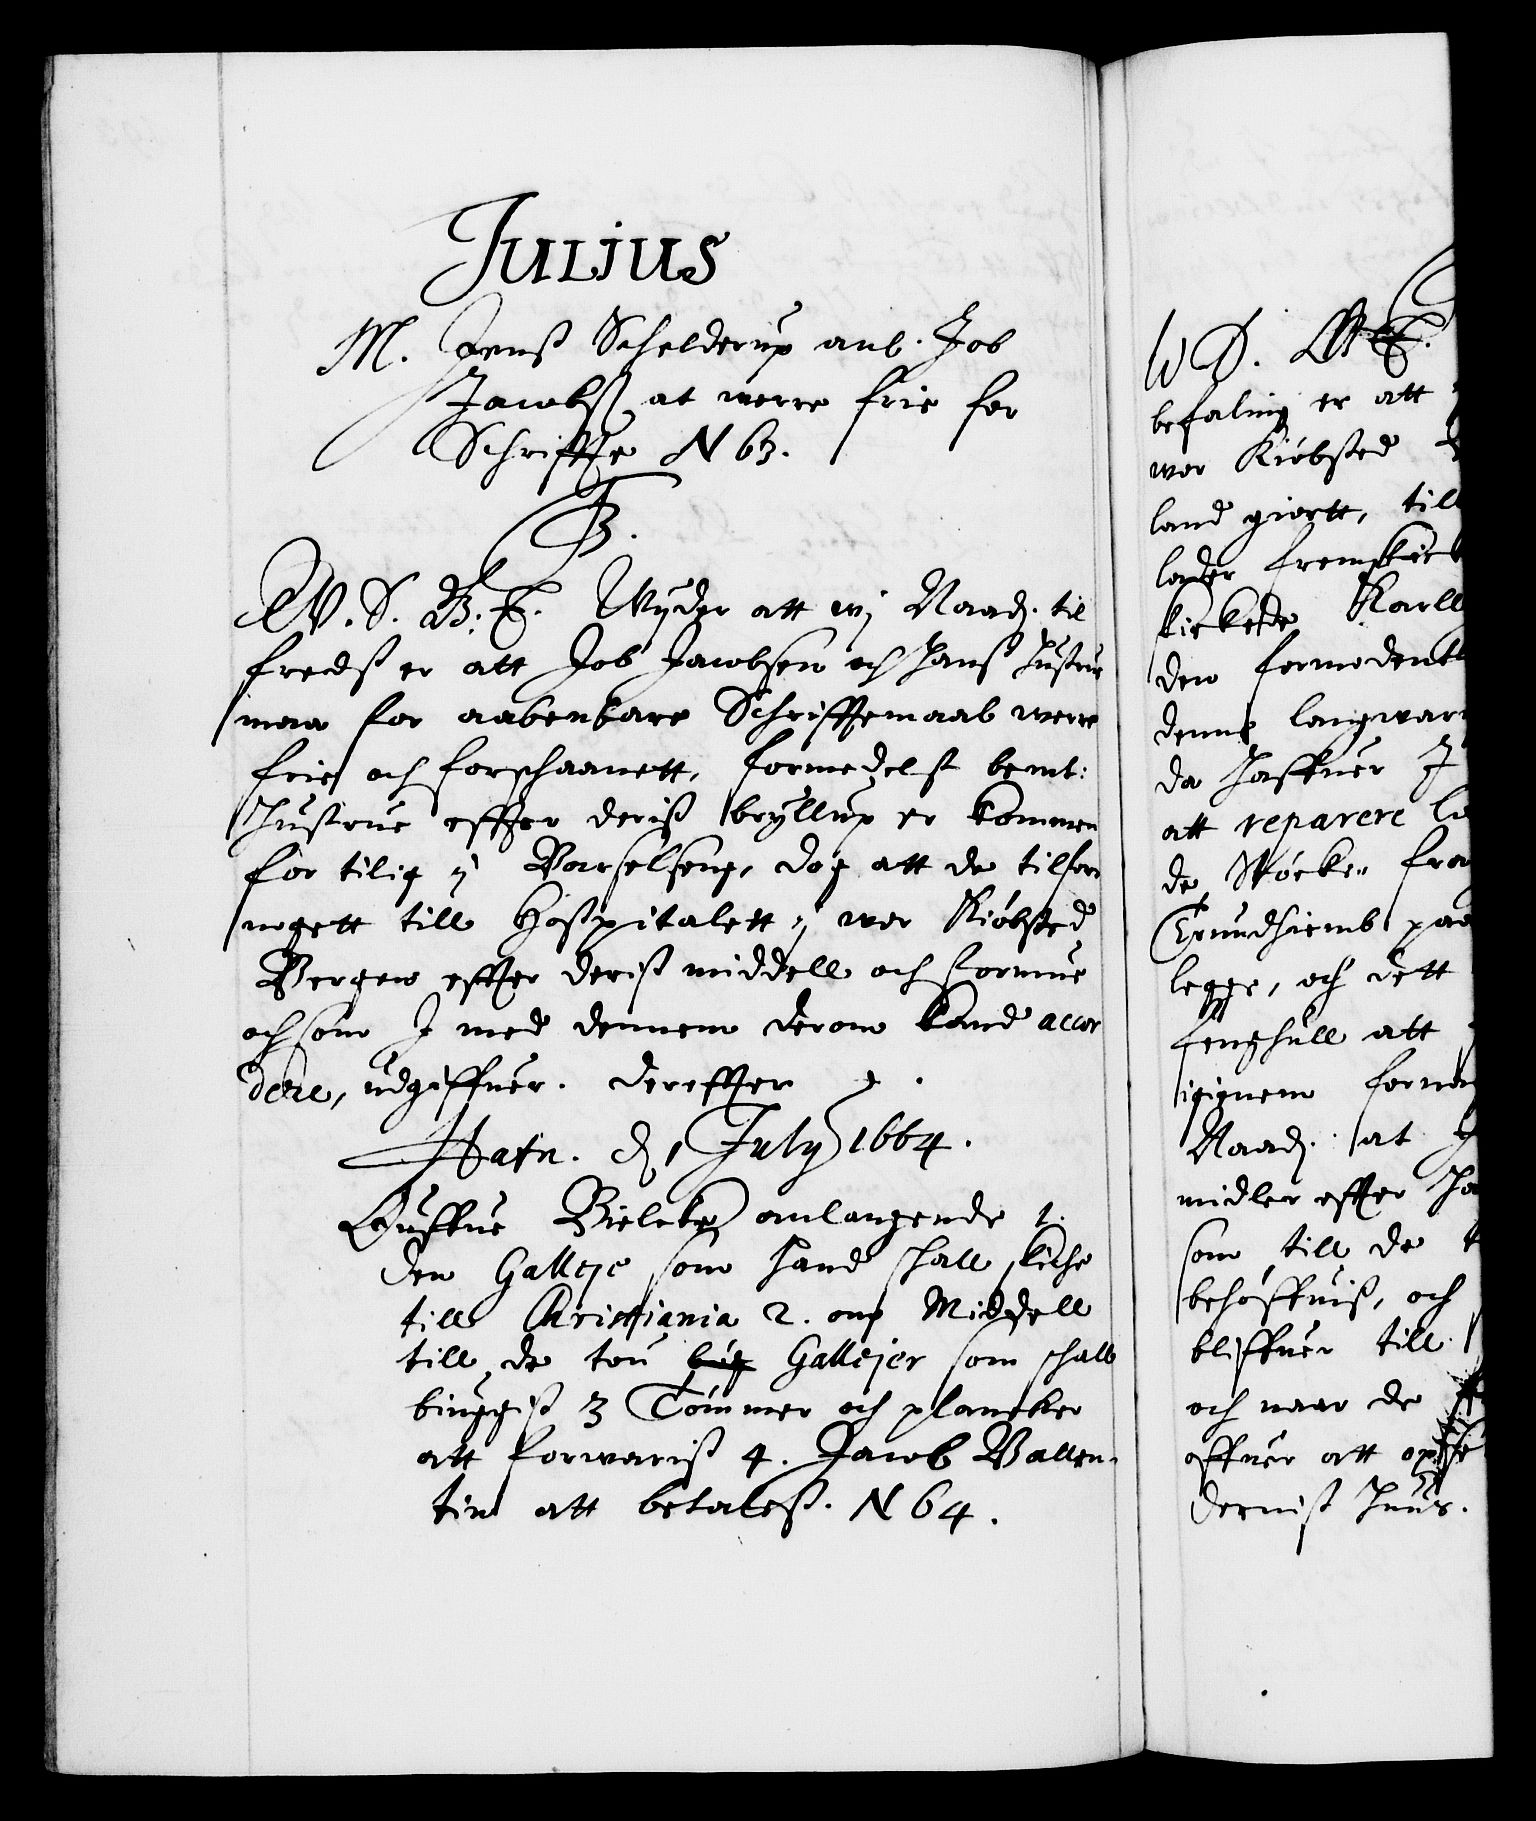 Julius
M. Jenß Schelderup anl. Job
Jacobß at werre frie for
Schriffte N 63.
B.
W. S. G. T. Wijder att wj Naadj. til
fredß er att Job Jacobsen och hanß hustrue
maa for aabenbare Schrifftemaal werre
frie och forschaanett, formedelst bemt:
hustrue effter deriß bryllup er kommen
for tilig ij Barselseng, dog att de tilforn
nogett till Hospitalett ij wor Kiøbsted
Bergen effter deriß middell och formue
och som J med dennem derom kand accor
dere, udgiffuer. dereffter
Hafn. d 1 July 1664.
Ouffue Bielcke anlangende 1.
den Galleje som hand schall skiche
till Christiania 2. om Middell
till de tou big Gallejer som schall
biuggiß 3 Tömmer och plancker
att forwariß 4. Jacob Vallen-
tin att betaleß. N 64.
befaling er att
wor Kiøbsted
land giortt, till
lader fremskick
skickede Karll
den formedentl
denne langwar
da haffuer J
att reparere la
de Støcker fra
Trundhiemb paa
legge, och dett
fenghull att
igiennem forne
Naadj. at
midler effter ha
som till de t
behøffuiß, och
bliffuer till
och naar de
offuer att opse
derniß huus.